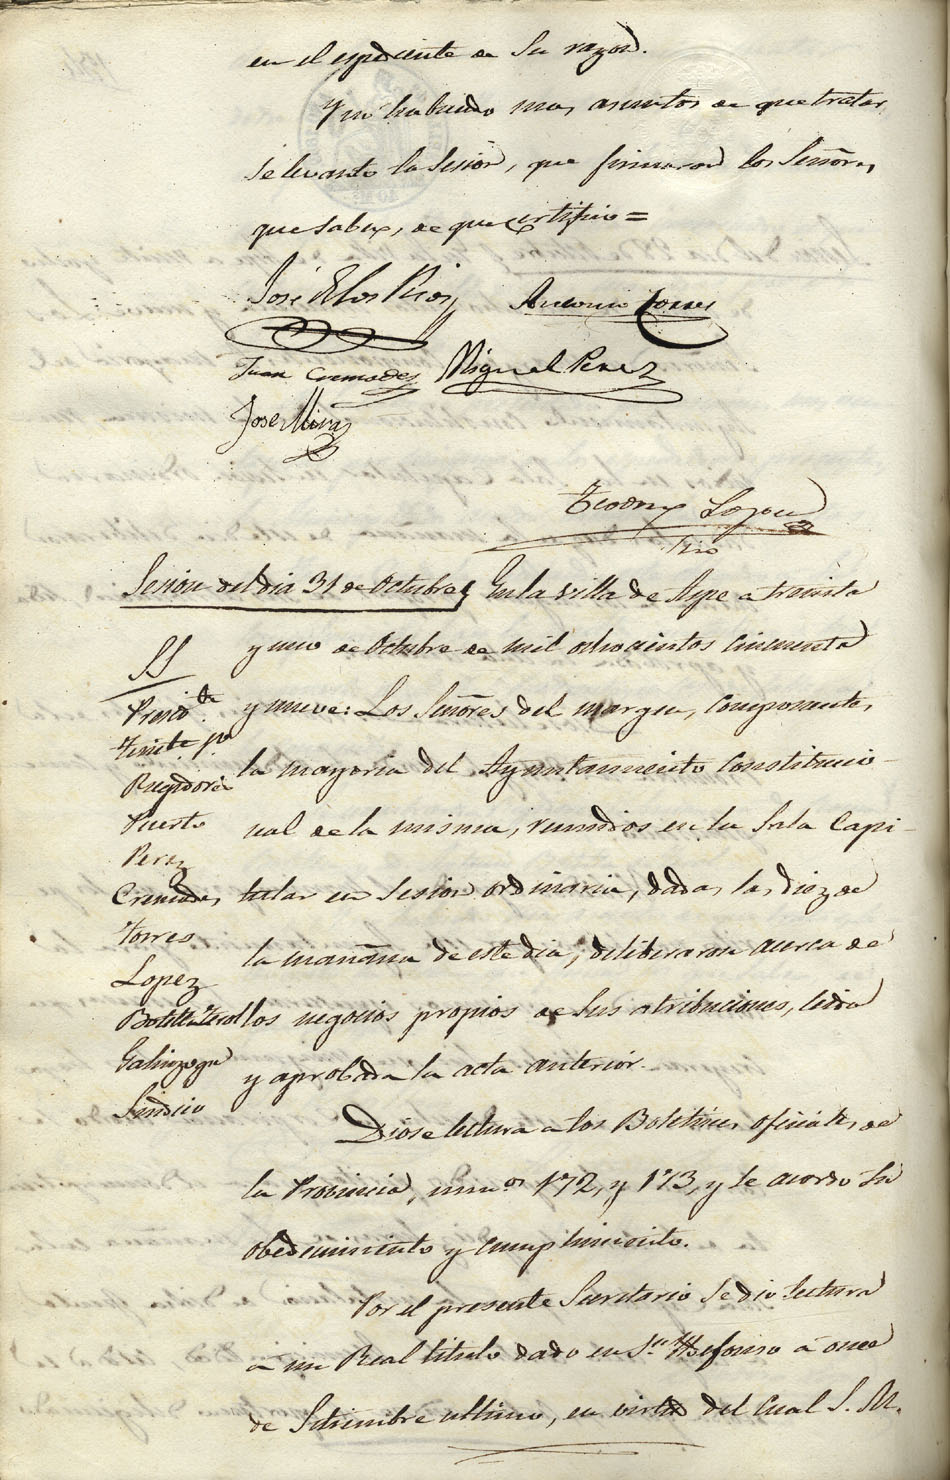 en el espediente de su razon.
Y no habiendo mas asuntos de que tratar
se levanto la Sesion, que firmaron los Señores
que saben, de que certifico =
José de los Rios Antonio Torres
Juan Cremades Miguel Perez
Jose Mira
Srio
Sesion del dia 31 de Octubre En la villa de Aspe a treinta
y uno de Octubre de mil ochocientos cincuenta
y nueve: Los Señores del margen, componentes
la mayoria del Ayuntamiento Constitucio-
nal de la misma, reunidos en la Sala Capi-
tular en Sesion ordinaria, dadas las diez de
la mañana de este dia, deliberaron acerca de
los negocios propios de sus atribuciones, leida
y aprobada la acta anterior.
SS
Presid.te
Tiente pº
Regidores
Puerto
Perez
Cremades
Torres
Lopez
Botella Terol
Galinzoga
Sindico
Diose lectura a los Boletines oficiales de
la Provincia, numos 172, y 173, y se acordo su
obedecimiento y cumplimiento.
Por el presente Secretario se dio lectura
a un Real titulo dado en Sn Ildefonso á once
de Setiembre ultimo, en virtud del cual S. M.